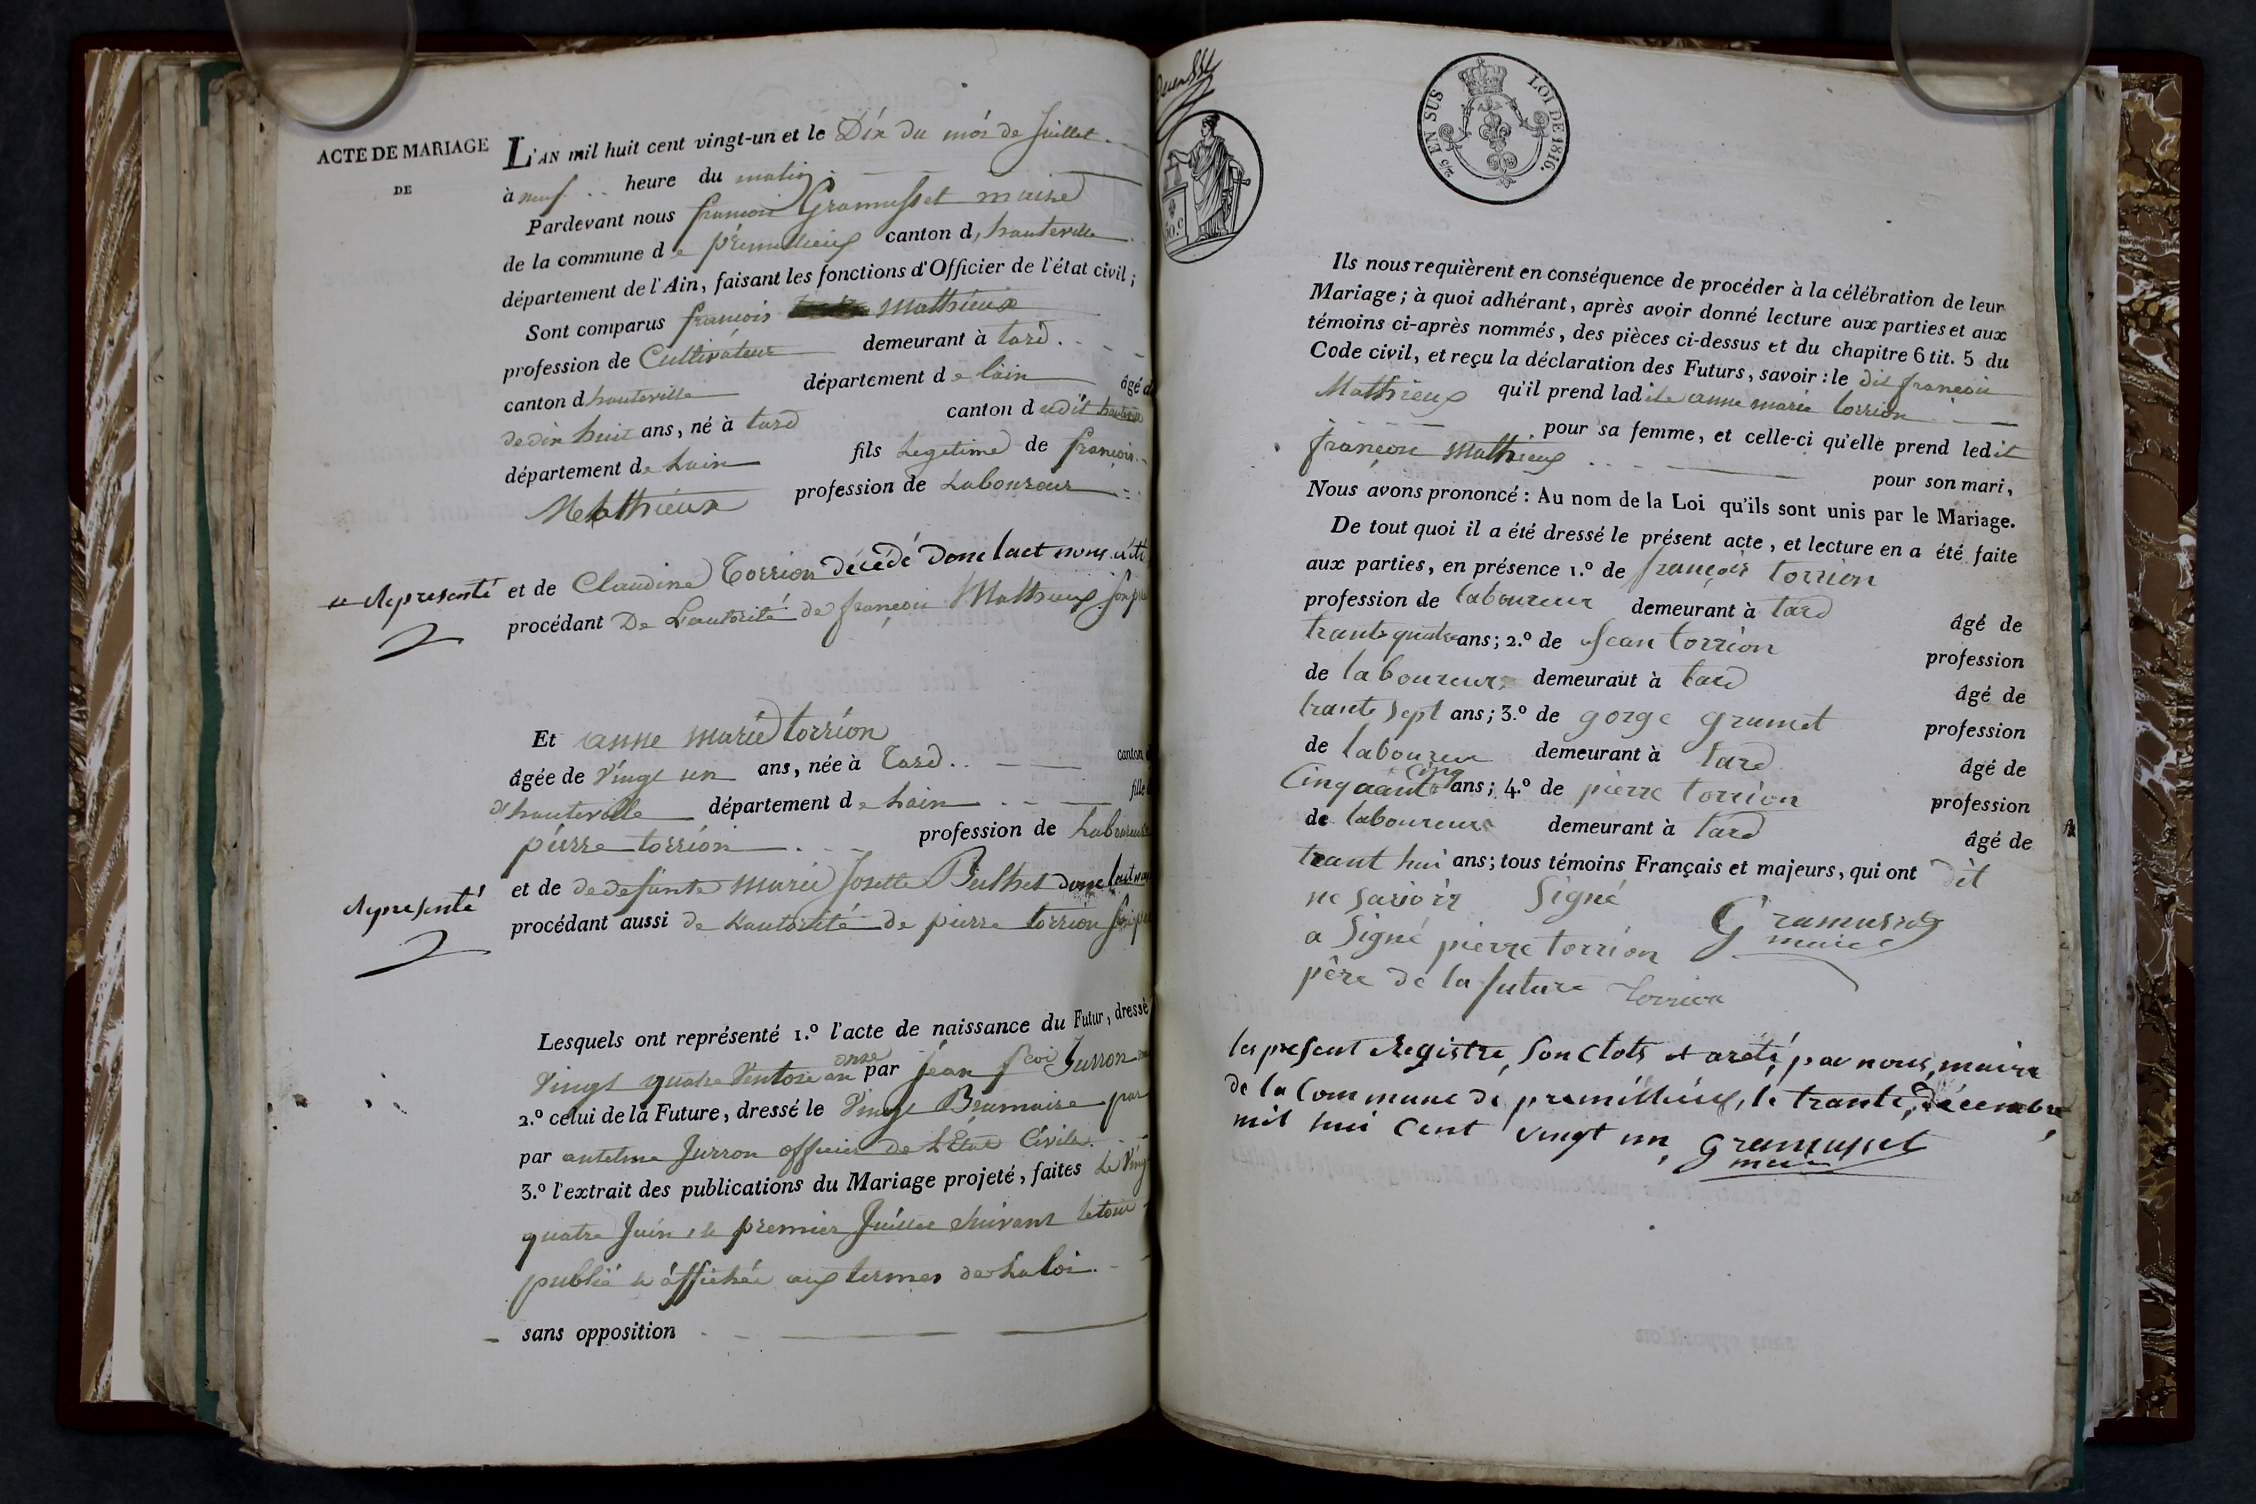 ACTE DE MARIAGE
DE
L'AN mil huit cent vingt-un et le Dix du mois de Juillet
à neuf heure du matin
Pardevant nous françois Gramusset maire
de la commune de prémillieux canton d, hauteville
département de l'Ain, faisant les fonctions d'Officier de l'état civil;
Sont comparus françois Mathieux
profession de Cultivateur demeurant à tard
canton d hauteville département de lain âgé de
de dix huit ans, né à tard canton dudit hauteville
département de Lain fils Legitime de françois
Mathieux profession de Laboureur
et de Claudine Torrion décédé Donc lact nous a été
Representé
procédant De L'autorité de françois Mathieux son père
Et anne marie torrion
âgée de vingt un ans, née à tard canton
d'hauteville département de Lain fille
pierre torrion profession de Laboureur
et de dedefunte marie Josette Bulhet donc lact nous
Representé
procédant aussi de L'autorité de pierre torrion son père
Lesquels ont représenté 1.º l'acte de naissance du Futur, dressé
vingt quatre Ventose an onze par jean fcoi Jurron
2.º celui de la Future, dressé le vingt Brumaire par
par antelme Jurron officier de L'État Civile
3.º l'extrait des publications du Mariage projeté, faites Le Vingt
quatre Juin, le premier Juillet Suivant letout
publié et affichée aux termes de La loi
sans opposition
2/5 EN SUS LOI DE 1816.
50.C
Ils nous requièrent en conséquence de procéder à la célébration de leur
Mariage; à quoi adhérant, après avoir donné lecture aux parties et aux
témoins ci-après nommés, des pièces ci-dessus et du chapitre 6 tit. 5 du
Code civil, et reçu la déclaration des Futurs, savoir: le dit françois
Mathieux qu'il prend ladite anne marie torrion
pour sa femme, et celle-ci qu'elle prend ledit
françois Mathieux pour son mari,
Nous avons prononcé: Au nom de la Loi qu'ils sont unis par le Mariage.
De tout quoi il a été dressé le présent acte, et lecture en a été faite
aux parties, en présence 1.º de françois torrion
profession de laboureur demeurant à tard âgé de
trante quatre ans; 2.º de Jean torrion profession
de laboureur demeurant à tard âgé de
trante sept ans; 3.º de gorge grumet profession
de laboureu demeurant à tard âgé de
Cinquante Cinq ans; 4.º de pierre torrion profession
de laboureur demeurant à tard âgé de
trant hui ans; tous témoins Français et majeurs, qui ont dit
ne savoir Signé Gramusset
maire
a Signé pierre torrion
père de la future torrion
les present Registre, Son Clots et areté, par nous, maire
de la Commune de premillieux, le trante, décembre,
mil hui Cent vingt un, Gramusset
maire